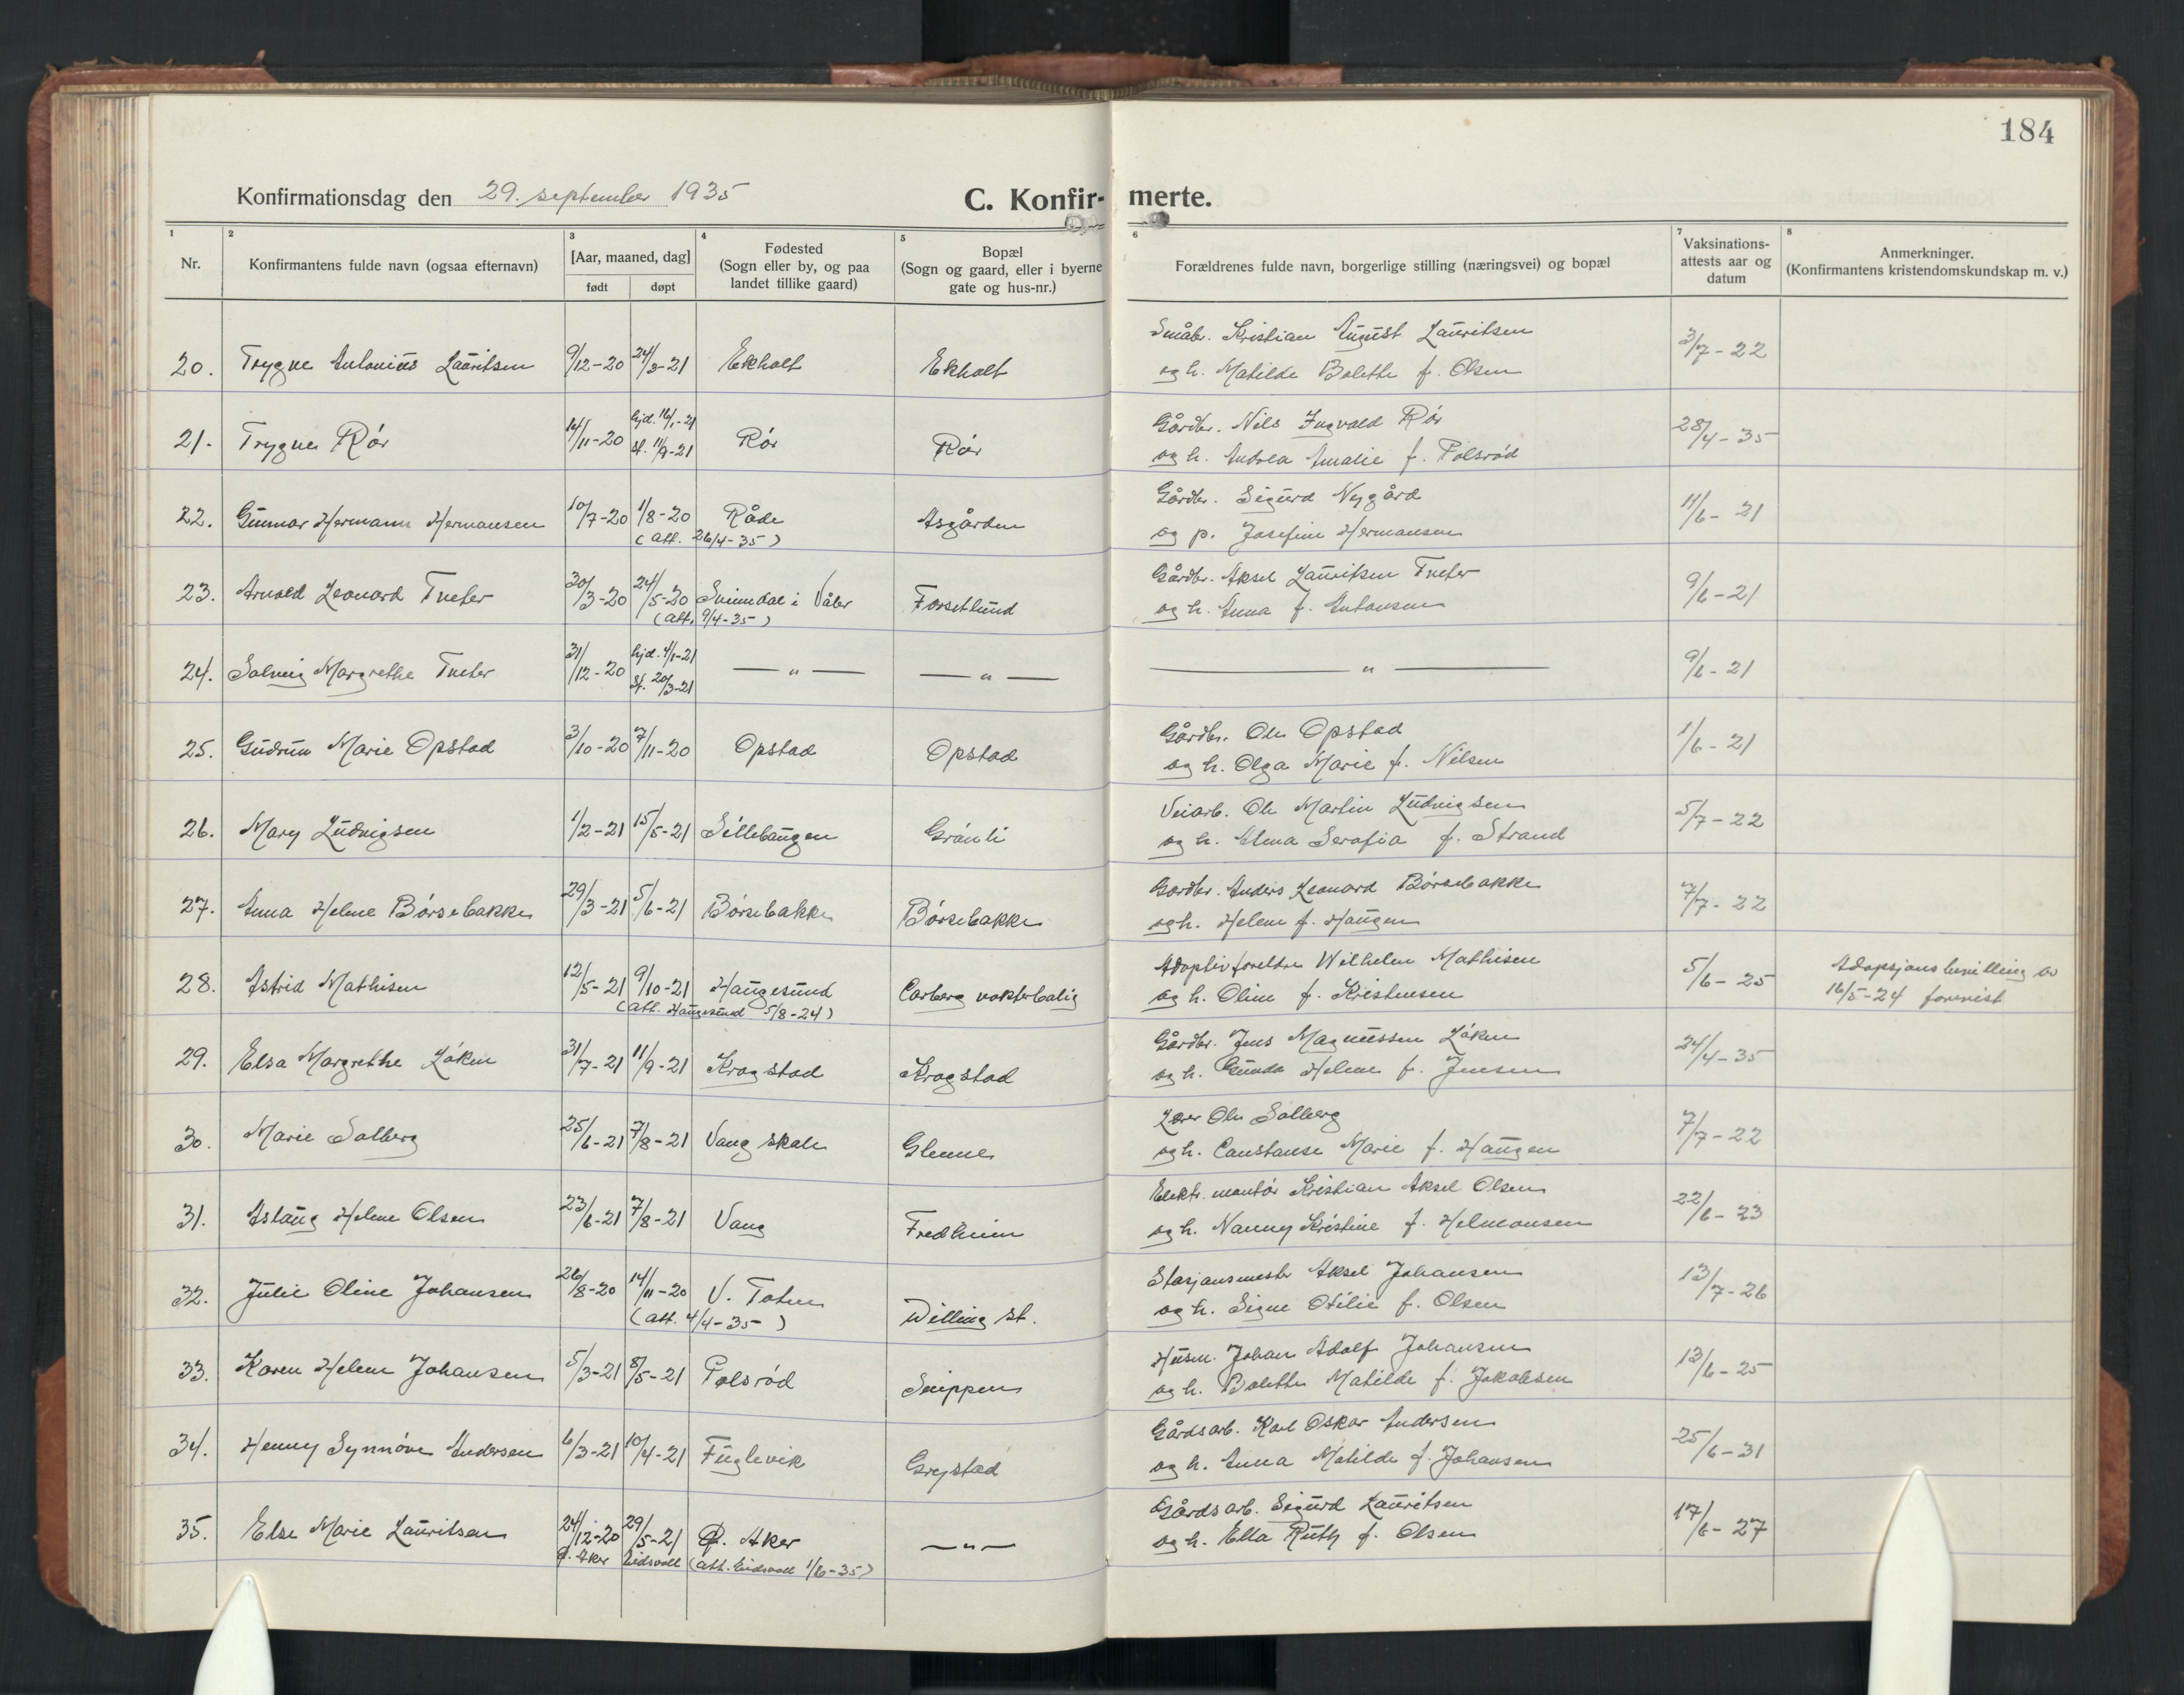 184
Konfirmationsdag den 29. september 1935
C. Konfir- merte.
1 2 3 4 5 6 7 8
Nr.
Konfirmantens fulde navn (ogsaa efternavn)
[Aar, maaned, dag]
født døpt
Fødested
(Sogn eller by, og paa
landet tillike gaard)
Bopæl
(Sogn og gaard, eller i byerne
gate og hus-nr.)
Forældrenes fulde navn, borgerlige stilling (næringsvei) og bopæl
Vaksinations-
attests aar og
datum
Anmerkninger.
(Konfirmantens kristendomskundskap m. v.)
Småbr. Kristian August Lauritsen
20. Trygve Antonius Lauritsen 9/12-20 24/3-21 Ekholt Ekholt 3/7-22
og h. Matilde Bolette f. Olsen
hjd. 16/1-21 Gårdbr. Nils Ingvald Rör
21. Trygve Rör 14/11-20 Rör Rör 28/4-35
st. 11/9-21 og h. Andrea Amalie f. Polsröd
Gårdbr. Sigurd Nygård
22. Gunnar Hermann Hermansen 10/7-20 1/8-20 Råde Asgården 11/6-21
(att. 26/4-35) og p. Josefine Hermansen
Gårdbr. Aksel Lauritsen Tveter
23. Arnold Leonard Tveter 30/3-20 24/5-20 Svinndal i Våler Forsetlund 9/6-21
(att. 9/4-35) og h. Anna f. Antonsen
hjd. 4/1-21
24. Solveig Margrethe Tveter 31/12-20 — " — — " — — " — 9/6-21
st. 20/3-21
Gårdbr. Ole Opstad
25. Gudrun Marie Opstad 3/10-20 7/11-20 Opstad Opstad 1/6-21
og h. Olga Marie f. Nilsen
Veiarb. Ole Martin Ludvigsen
26. Mary Ludvigsen 1/2-21 15/5-21 Sillebaugen Grönli 5/7-22
og h. Alma Serafia f. Strand
Gardbr. Anders Leonard Börsebakke
27. Anna Helene Börsebakke 29/3-21 5/6-21 Börsebakke Börsebakke 7/7-22
og h. Helene f. Haugen
Adoptivforeldre Wilhelm Mathisen
28. Astrid Mathisen 12/5-21 9/10-21 Haugesund Carberg vokterbolig 5/6-25 Adopsjonsbevilling av
(att. Haugesund 5/8-24) og h. Oline f. Kristensen 16/5-24 forevist
Gårdbr. Jens Magnussen Löken
29. Elsa Margrethe Löken 31/7-21 11/9-21 Krogstad Krogstad 24/4-35
og h. Gunda Helene f. Jensen
Lærer Ole Solberg
30. Marie Solberg 25/6-21 7/8-21 Vang skole Glenne 7/7-22
og h. Constanse Marie f. Haugen
Elektr. montör Kristian Aksel Olsen
31. Aslaug Helene Olsen 23/6-21 7/8-21 Vang Fredheim 22/6-23
og h. Nanny Kristine f. Helmonsen
Stasjonsmester Aksel Johansen
32. Julie Oline Johansen 26/8-20 14/11-20 V. Toten Dilling st. 13/7-26
(att. 4/4-35) og h. Signe Otilie f. Olsen
Husm. Johan Adolf Johansen
33. Karen Helene Johansen 5/3-21 8/5-21 Polsröd Snippen 13/6-25
og h. Bolette Matilde f. Jakobsen
Gårdsarb. Karl Oskar Andersen
34. Henny Synnöve Andersen 6/3-21 10/4-21 Fuglevik Grystad 25/6-31
og h. Anna Matilde f. Johansen
Gårdsarb. Sigurd Lauritsen
35. Else Marie Lauritsen 24/12-20 29/5-21 Ø. Aker — " — 17/6-27
Ø. Aker Eidsvoll (att. Eidsvoll 1/6-35) og h. Ella Ruth f. Olsen